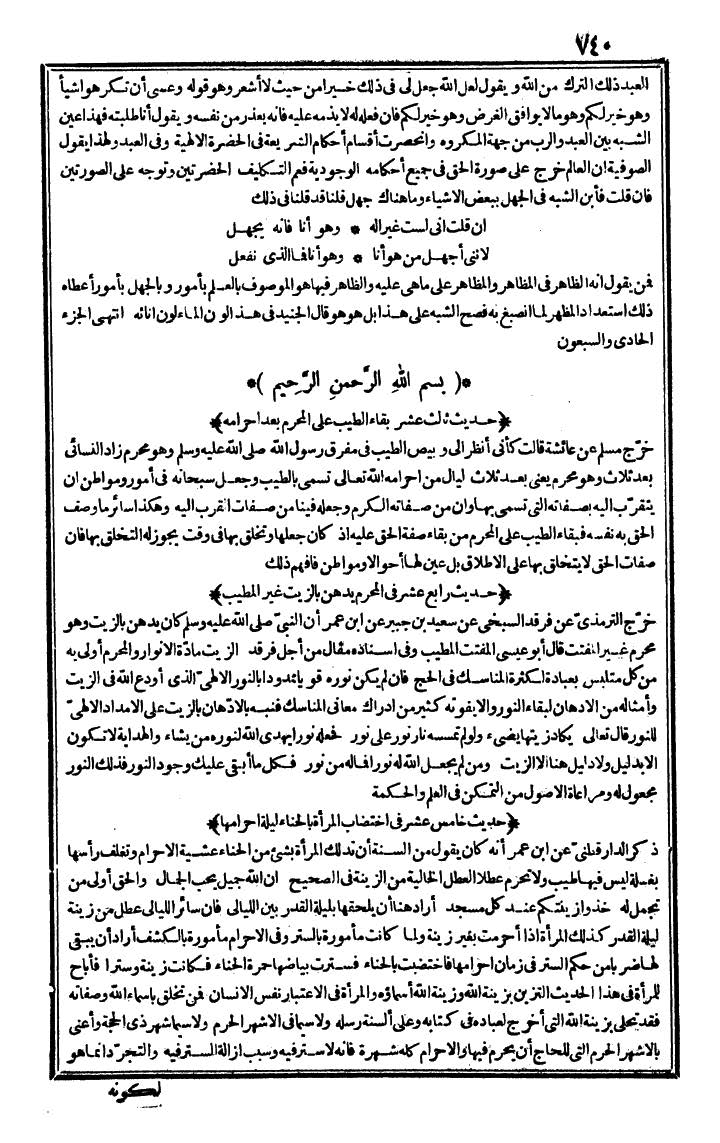 ٧٤٠
العبد ذلك الترك من الله ويقول لعل الله جعل لى فى ذلك خسيرا من حيث لا أشعر وهو قوله وعسى أن تكرهوا شيأ
وهو خير لكم وهو ما لا يوافق الغرض وهو خير لكم فان فعله له لا يذمه عليه فانه يعذر من نفسه ويقول أنا طلبته فهذا عين
الشبه بين العبد والرب من جهة المكروه وانحصرت أقسام أحكام الشريعة فى الحضرة الالهية وفى العبد ولهذا يقول
الصوفية ان العالم خرج على صورة الحق فى جميع أحكامه الوجودية فعم التكليف الحضرتين وتوجه على الصورتين
فان قلت فأين الشبه فى الجهل ببعض الاشياء وما هناك جهل قلنا قد قلنا فى ذلك
ان قلت انى لست غيرا له * وهو أنا فانه يجهل
لاننى أجهل من هو أنا * وهو أنا فما الذى نفعل
فمن يقول انه الظاهر فى المظاهر والمظاهر على ماهى عليه والظاهر فيها هو الموصوف بالعلم بأمور وبالجهل بأمور أعطاه
ذلك استعداد المظهر لما انصبغ به فصح الشبه على هذا بل هو هو قال الجنيد فى هذا لون الماء لون انائه انتهى الجزء
الحادى والسبعون
*( بسم الله الرَّحمنِ الرَّحِيمِ )*
﴿حديث ثالث عشر بقاء الطيب على المحرم بعد احرامه﴾
خرّج مسلم عن عائشة قالت كأنى أنظر الى وبيص الطيب فى مفرق رسول الله صلى الله عليه وسلم وهو محرم زاد النسائى
بعد ثلاث وهو محرم يعنى بعد ثلاث ليال من احرامه الله تعالى تسمى بالطيب وجعل سبحانه فى أمور ومواطن ان
يتقرّب اليه بصفاته التى تسمى بها وان من صفاته الكرم وجعله فينا من صفات القرب اليه وهكذا سائر ما وصف
الحق به نفسه فبقاء الطيب على المحرم من بقاء صفة الحق عليه اذ كان جعلها وتخلق بها فى وقت يجوز له التخلق بها فان
صفات الحق لا يتخلق بها على الاطلاق بل عين لها أحوالا ومواطن فافهم ذلك
﴿حديث رابع عشر فى المحرم يدهن بالزيت غير المطيب﴾
خرّج الترمذىّ عن فرقد السبخى عن سعيد بن جبير عن ابن عمر أن النبىّ صلى الله عليه وسلم كان يدهن بالزيت وهو
محرم غير المفتت قال أبو عيسى المفتت المطيب وفى اسناده مقال من أجل فرقد الزيت مادّة الانوار والمحرم أولى به
من كل متلبس بعبادة لكثرة المناسك فى الحج فان لم يكن نوره قويا ممدودا بالنور الالهىّ الذى أودع الله فى الزيت
وأمثاله من الادهان لبقاء النور والا يفوته كثير من ادراك معانى المناسك فنبه بالادّهان بالزيت على الامداد الالهىّ
للنور قال تعالى يكاد زيتها يضىء ولو لم تمسسه نار نور على نور فجعله نورا يهدى الله لنوره من يشاء والهداية لا تكون
الا بدليل ولا دليل هنا الا الزيت ومن لم يجعل الله له نورا فماله من نور فكل ما أبقى عليك وجود النور فذلك النور
مجعول له ومراعاة الاصول من التمكن فى العلم والحكمة
﴿حديث خامس عشر فى اختضاب المرأة بالحناء ليلة احرامها﴾
ذكر الدارقطنىّ عن ابن عمر أنه كان يقول من السنة أن تدلك المرأة بشئ من الحناء عشية الاحرام وتغلف رأسها
بغسلة ليس فيها طيب ولا تحرم عطلا العطل الخالية من الزينة فى الصحيح ان الله جميل يحب الجمال والحق أولى من
تجمل له خذوا زينتكم عند كل مسجد أراد هنا أن يلحقها بليلة القدر بين الليالى فان سائر الليالى عطل من زينة
ليلة القدر كذلك المرأة اذا أحرمت بغير زينة ولما كانت مأمورة بالستر وفى الاحرام مأمورة بالكشف أراد أن يبقى
لها ضربا من حكم الستر فى زمان احرامها فاختضبت بالحناء فسترت بياضها حمرة الحناء فكانت زينة وسترا فأباح
للمرأة فى هذا الحديث التزين بزينة الله وزينة الله أسماؤه والمرأة فى الاعتبار نفس الانسان فمن تخلق باسماء الله وصفاته
فقد تحلى بزينة الله التى أخرج لعباده فى كتابه وعلى ألسنة رسله ولا سيما فى الاشهر الحرم ولا سيما شهر ذى الحجة وأعنى
بالاشهر الحرم التى للحاج أن يحرم فيها والاحرام كله شهرة فانه لا ستر فيه وسبب ازالة الستر فيه والتجرّد انما هو
لكونه